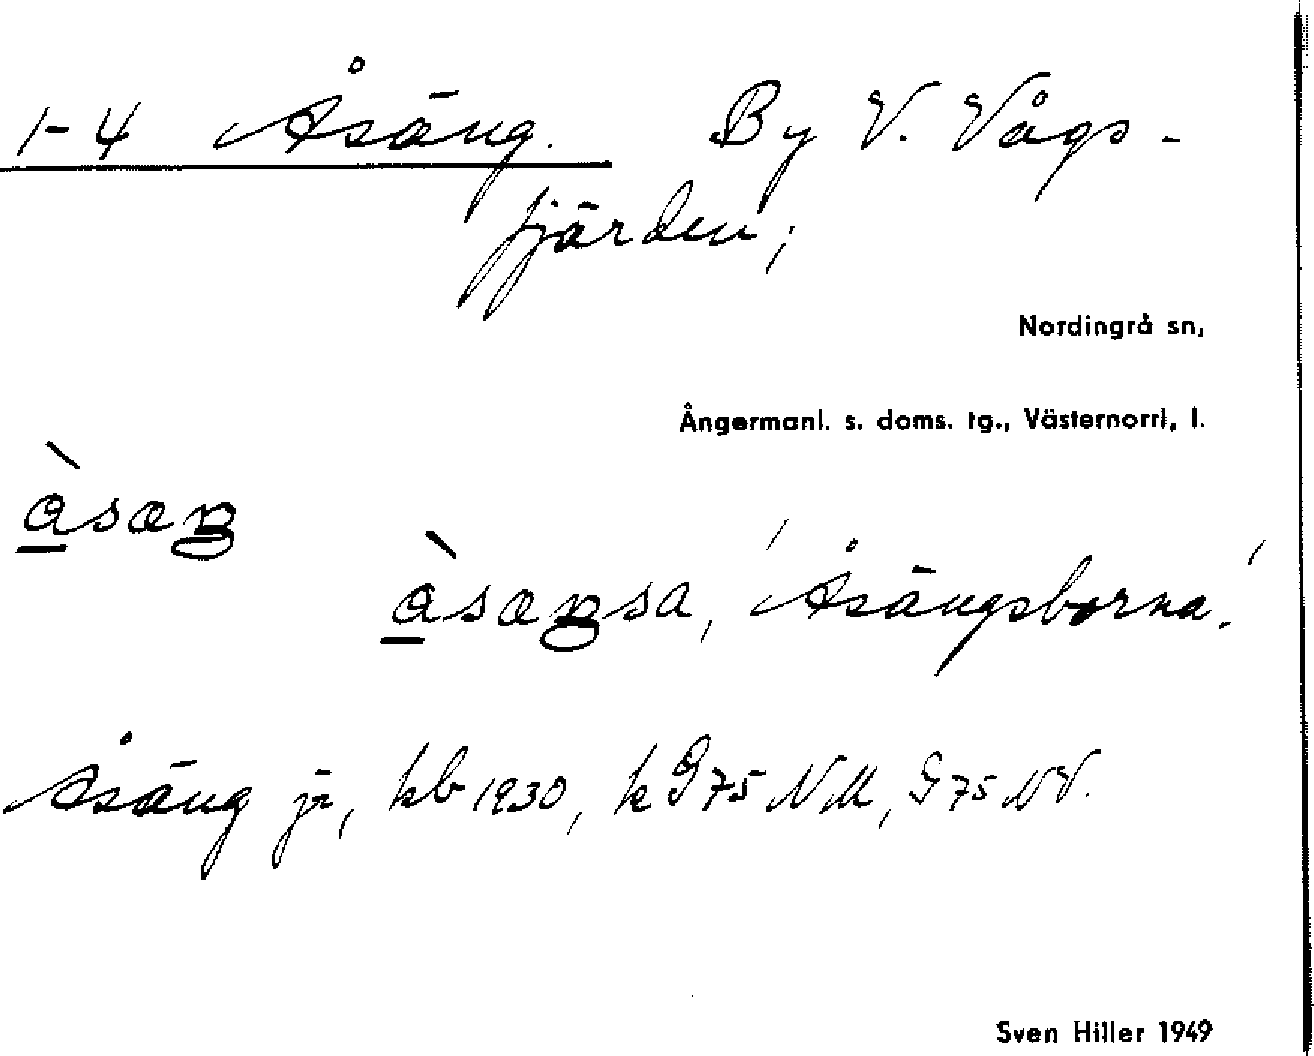 1-4 Åsäng. By V. Vågs-
fjärden;
Nordingrå sn,
Ångermanl. s. doms. tg., Västernorrl, l.
à̲sæŋ
à̲sæŋsa, 'Åsängsborna.'
Åsäng jr, kb 1930, k G75 NM, G75 NV.
Sven Hiller 1949